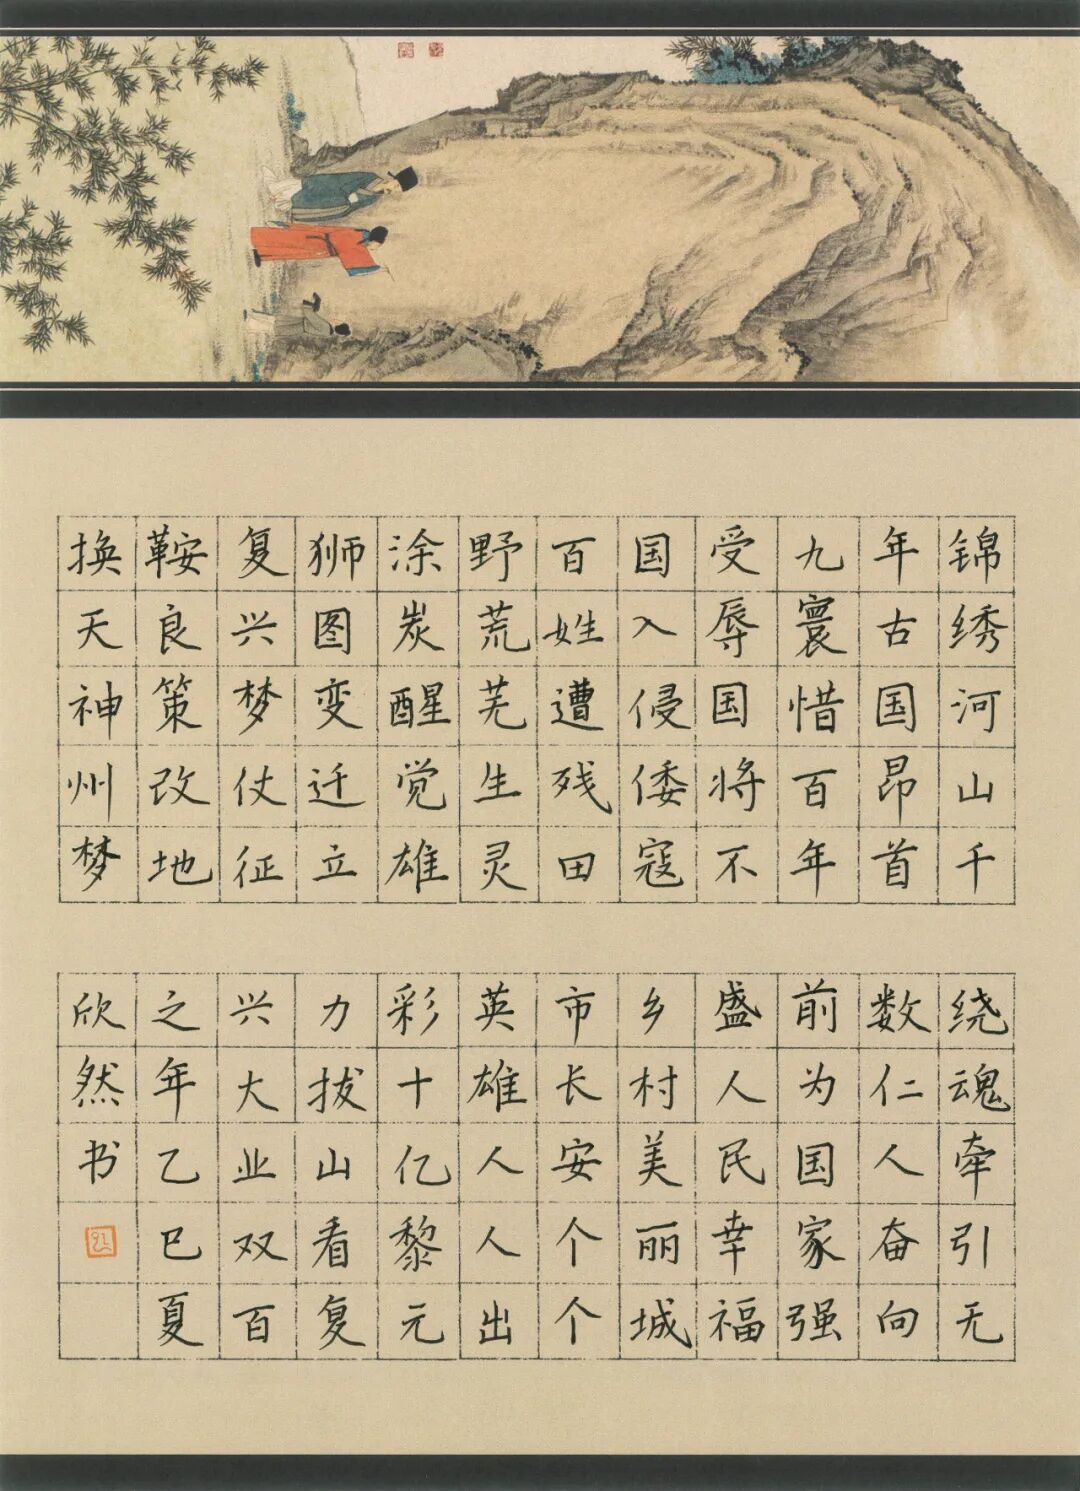 锦绣河山千
年古国昂首
九寰惜百年
受辱国将不
国入侵倭寇
百姓遭残田
野荒芜生灵
涂炭醒觉雄
狮图变迁立
复兴梦仗征
鞍良策改地
换天神州梦
绕魂牵引无
数仁人奋向
前为国家强
盛人民幸福
乡村美丽城
市长安个个
英雄人人出
彩十亿黎元
力拔山看复
兴大业双百
之年乙巳夏
欣然书